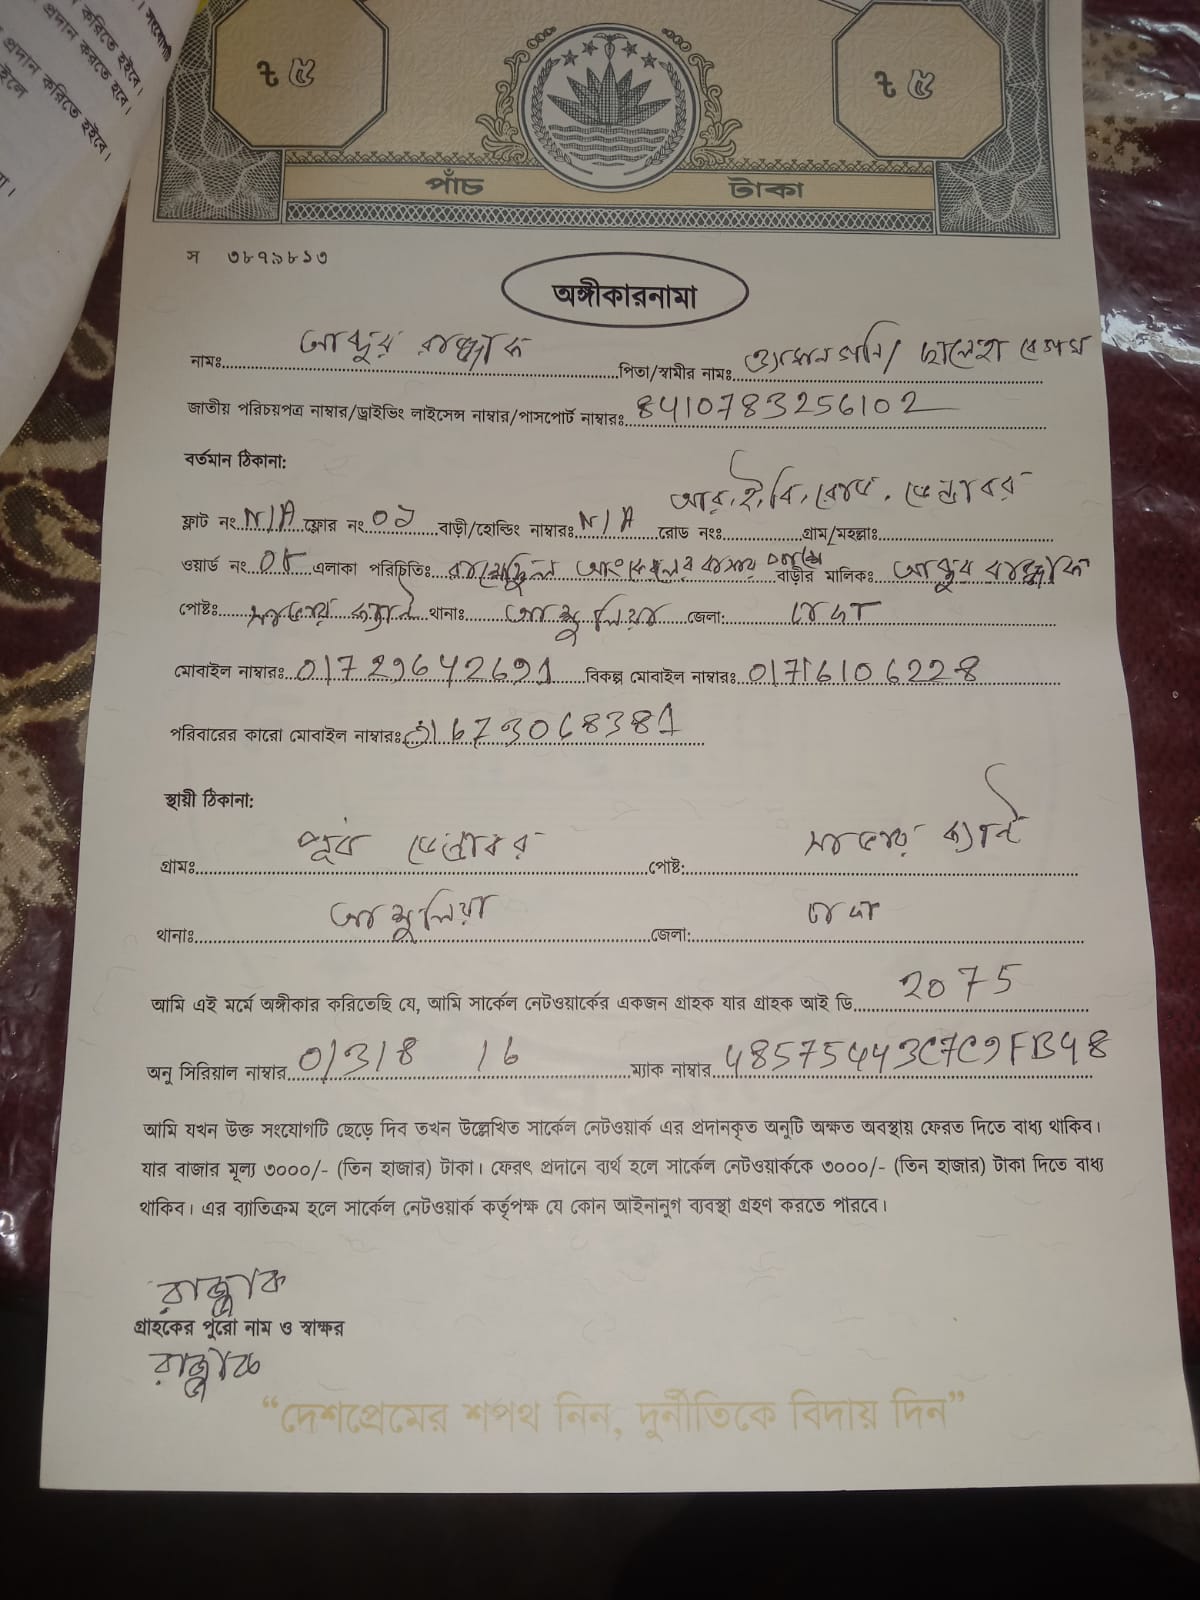 ৳ ৫
৳ ৫
পাঁচ টাকা
স ৩৮৭৯৮১৩
অঙ্গীকারনামা
নামঃ আব্দুর রাজ্জাক পিতা/স্বামীর নামঃ ওসমান গনি/ ছালেহা বেগম
জাতীয় পরিচয়পত্র নাম্বার/ড্রাইভিং লাইসেন্স নাম্বার/পাসপোর্ট নাম্বারঃ 8410783256102
বর্তমান ঠিকানা:
ফ্লাট নং N/A ফ্লোর নং 01 বাড়ী/হোল্ডিং নাম্বারঃ N/A রোড নংঃ গ্রাম/মহল্লাঃ আর, ই, বি, রোড, ডেন্ডাবর
ওয়ার্ড নং 08 এলাকা পরিচিতিঃ বাসার বাড়ীর মালিকঃ আব্দুর রাজ্জাক
পোষ্টঃ থানাঃ আশুলিয়া জেলা: ঢাকা
মোবাইল নাম্বারঃ 01729642691 বিকল্প মোবাইল নাম্বারঃ 01716106228
পরিবারের কারো মোবাইল নাম্বারঃ 01673068381
স্থায়ী ঠিকানা:
গ্রামঃ পূর্ব ডেন্ডাবর পোষ্ট: সাভার ক্যান্ট
থানাঃ আশুলিয়া জেলা: ঢাকা
আমি এই মর্মে অঙ্গীকার করিতেছি যে, আমি সার্কেল নেটওয়ার্কের একজন গ্রাহক যার গ্রাহক আই ডি 2075
অনু সিরিয়াল নাম্বার 0/3/8 16 ম্যাক নাম্বার 48575443C7C9FB48
আমি যখন উক্ত সংযোগটি ছেড়ে দিব তখন উল্লেখিত সার্কেল নেটওয়ার্ক এর প্রদানকৃত অনুটি অক্ষত অবস্থায় ফেরত দিতে বাধ্য থাকিব।
যার বাজার মূল্য ৩০০০/- (তিন হাজার) টাকা। ফেরৎ প্রদানে ব্যর্থ হলে সার্কেল নেটওয়ার্ককে ৩০০০/- (তিন হাজার) টাকা দিতে বাধ্য
থাকিব। এর ব্যাতিক্রম হলে সার্কেল নেটওয়ার্ক কর্তৃপক্ষ যে কোন আইনানুগ ব্যবস্থা গ্রহণ করতে পারবে।
রাজ্জাক
গ্রাহকের পুরো নাম ও স্বাক্ষর
রাজ্জাক
“দেশপ্রেমের শপথ নিন, দুর্নীতিকে বিদায় দিন”